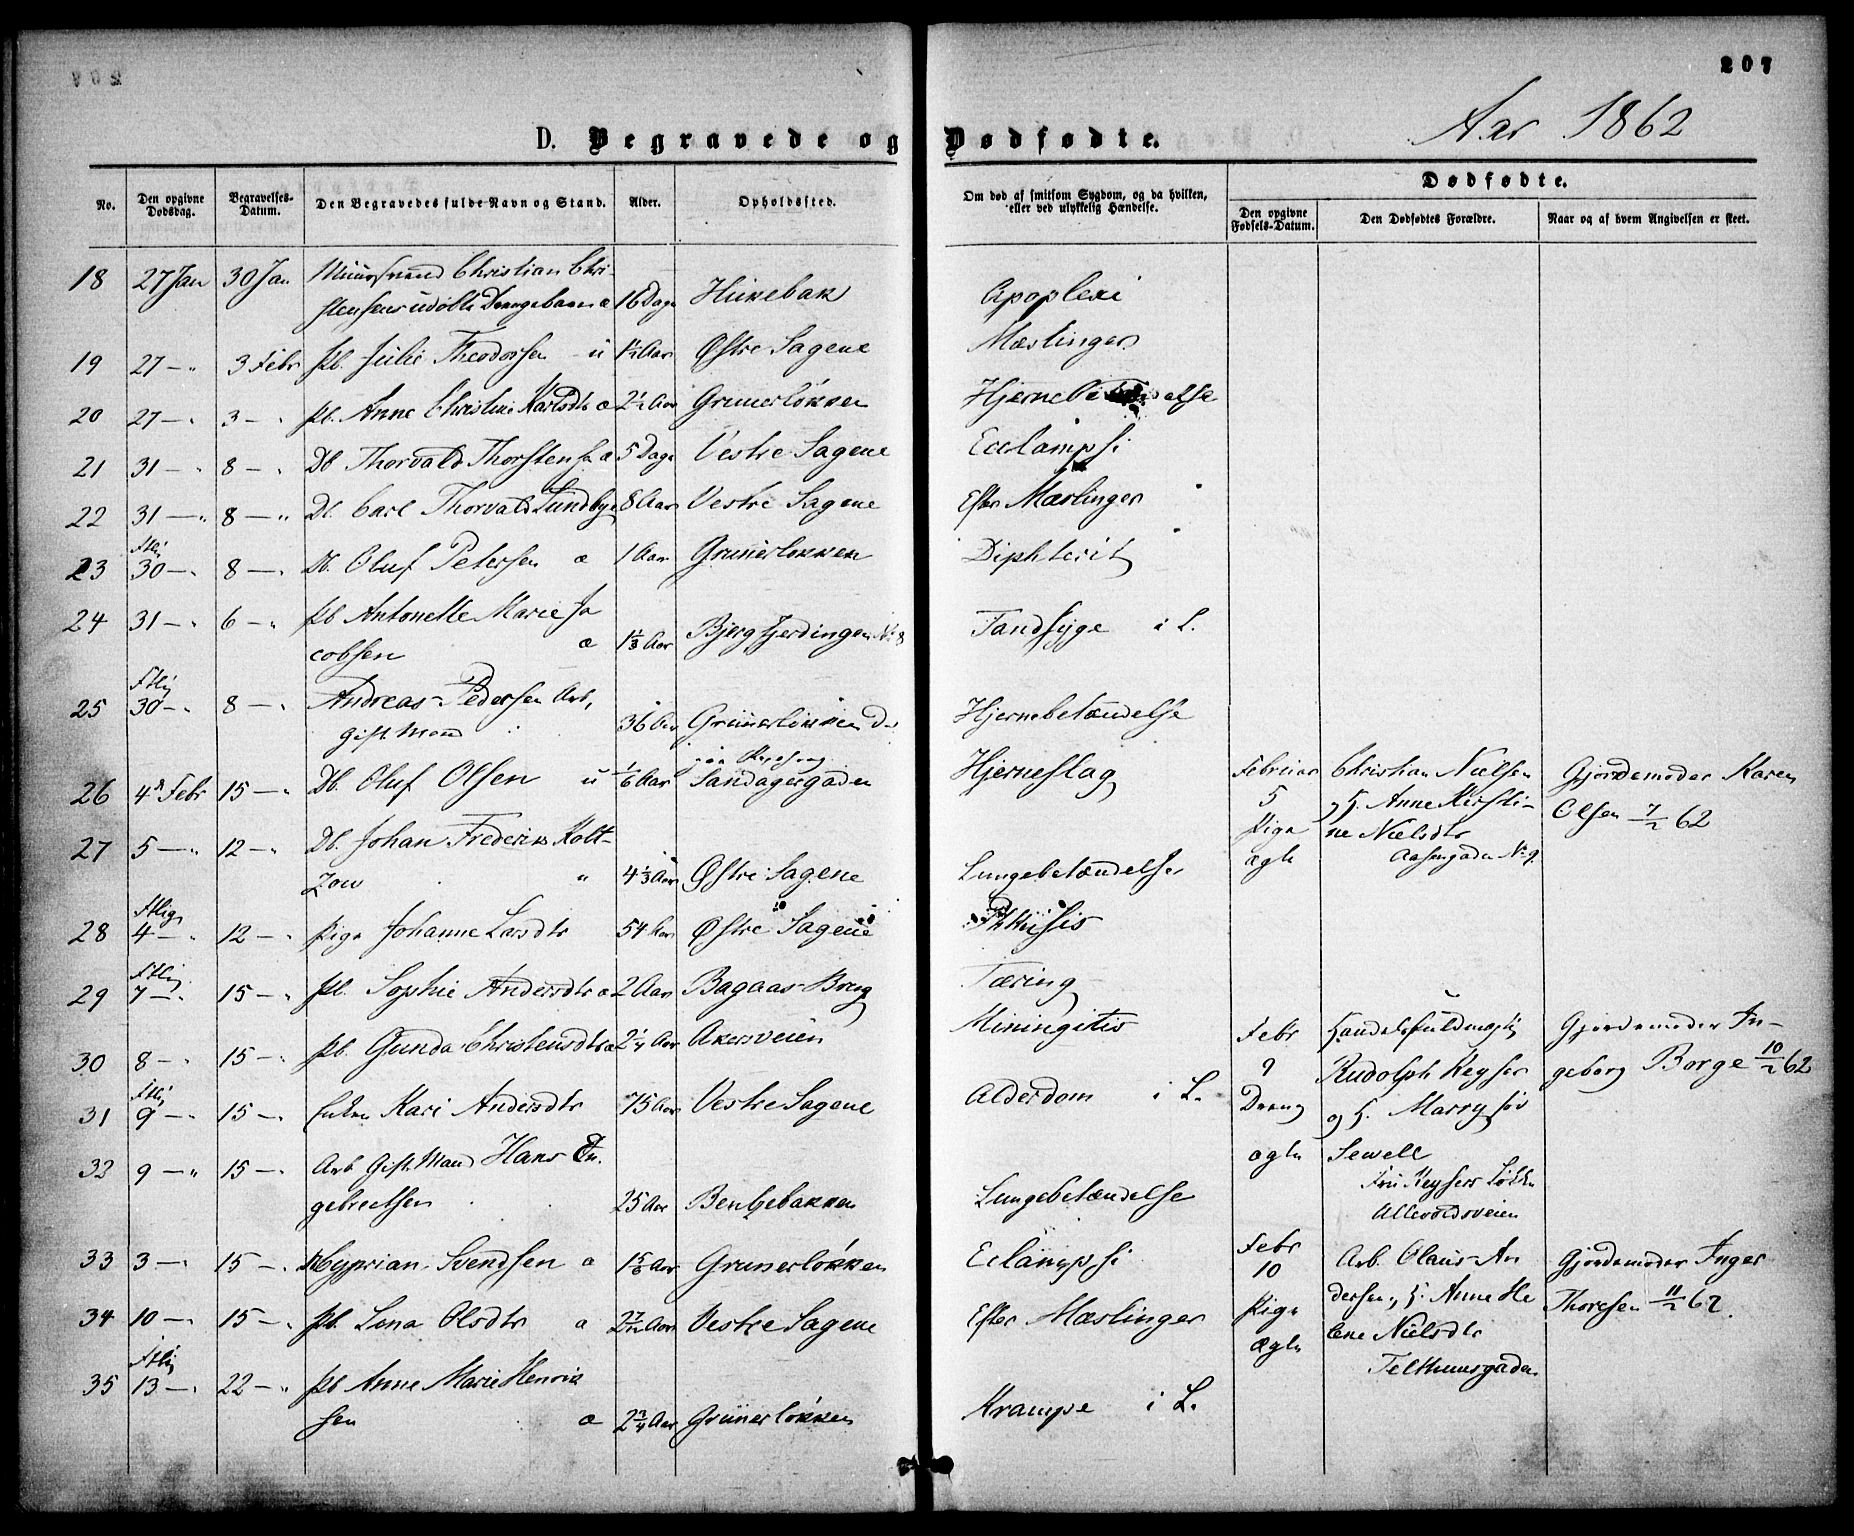 207
Aar 1862
D. Begravede og Dødfødte.
No. Den opgivne Dødsdag. Begravelses-Datum. Den Begravedes fulde Navn og Stand. Alder. Opholdssted. Om død af smitsom Sygdom, og da hvilken, eller ved ulykkelig Hændelse. Dødfødte.
Den opgivne Fødsels-Datum. Den Dødfødtes Forældre. Naar og af hvem Angivelsen er skeet.
18 27 Jan 30 Jan Christian Chri-
stensens udøbte Drengebarn æ 16 Dage Hukebak Apoplexi
19 27 — " 3 Febr Pb. Julie Theodorsen u 1½ Aar Østre Sagene Mæslinger
20 27 — " 3 — " Pb. Anne Christine Karlsdtr æ 2½ Aar Grünerløkken
21 31 — " 8 — " Db Thorvald Thorstensen æ 5 Dage Vestre Sagene Eclampsi
22 31 — " 8 — " Db. Carl Thorvald Lundbye 8 Aar Vestre Sagene Efter Mæslinger
23 Ftlig 30 — " 8 — " Db. Oluf Petersen æ 1 Aar Grünerløkken Diphterit
24 31 — " 6 — " Pb Antonette Marie Ja
cobsen æ 1⅓ Aar Bjergfjerdingen No 8 Tandsyge i L.
25 Ftlig 30 — " 8 — " Andreas Pedersen Arb,
gift Mand 36 Aar Grünerløkken D Hjernebetændelse
26 4d Febr 15 — " Db. Oluf Olsen u 1/6 Aar Sandagergaden Hjerneslag
Februar 5 Pige ægte
Christian Nielsen
og H. Anne Kirsti-
ne Nielsdtr
Aasengaden No 9.
Gjordemoder Karen
Olsen 7/2 62
27 5 — " 12 — " Db. Johan Frederik Kolt-
zow " 4⅓ Aar Østre Sagene Lungebetændelse
28 Ftlig 4 — " 12 — " Pige Johanne Larsdtr 54 Aar Østre Sagene Phthisis
29 Ftlig 7 — " 15 — " Pb. Sophie Andersdtr æ 2 Aar Bagaas Brug Tæring
30 8 — " 15 — " Pb. Gunda Christensdtr æ 2¼ Aar Akersveien Miningitis
Febr 9 Dreng ægte
Handelsfuldmægtig
Rudolph Keyser
og H. Marry født
Sewell
Fru Keysers Løkke
Ullevoldsveien
Gjordemoder In-
geborg Borge 10/2 62
31 Ftlig 9 — " 15 — " Enken Kari Andersdtr 75 Aar Vestre Sagene Alderdom i L.
32 9 — " 15 — " Arb Gift Mand Hans En.
gebretsen 25 Aar Bentsebakken Lungebetændelse
33 3 — " 15 — " Cyprian Svendsen æ 1 5/6 Aar Grünerløkken Eclampsi
Febr 10 Pige ægte
Arb. Olaus An
dersen, H. Anne He
lene Nielsdtr
Telthuusgaden
Gjordemoder Inger
Thoresen 11/2 62.
34 10 — " 15 — " Pb. Lina Olsdtr æ 2 7/12 Aar Vestre Sagene Efter Mæslinger
35 Ftlig 13 — " 22 — " Pb Anne Marie Henrik
sen æ 2¾ Aar Grünerløkken Krampe i L.